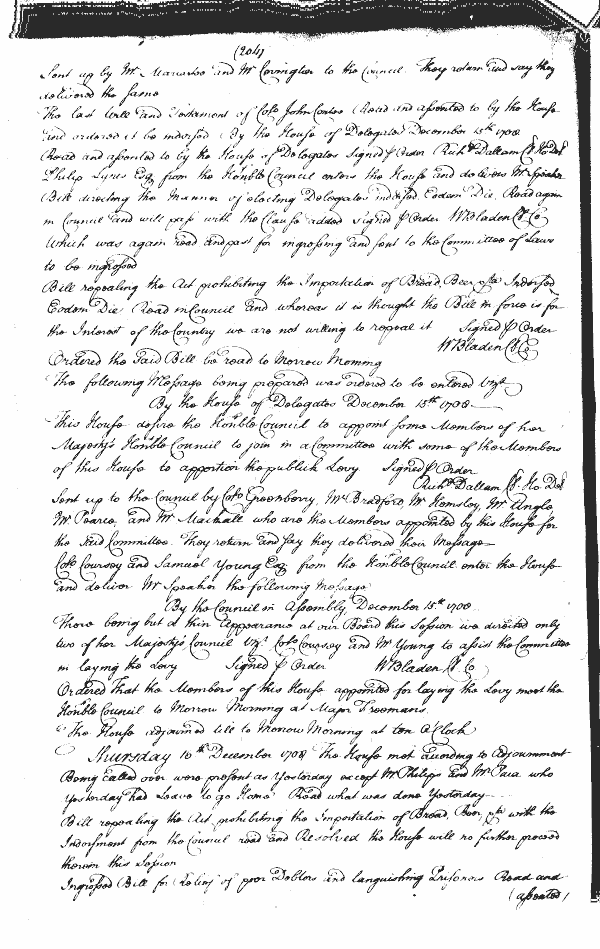 (204)
Sent up by Mr. Macartee and Mr. Covington to the Council. They return and say they
delivered the same
The last Will and Testament of Colo. John Contee Read and assented to by the House
and ordered it be indorsed (By the House of Delegates December 15th 1708
Read and assented to by the House of Delegates Signed P Order Richd. Dallam Cl. Ho. Del
Philip Lynes Esq from the Honble Council enters the House and delivers Mr. Speaker
Bill directing the Manner of electing Delegates indorsed Eodem Die. Read again
in Council and will pass with the Clause added Signed P Order WBladen Cl. Co
Which was again read and past for ingrossing and sent to the Committee of Laws
to be ingrossed
Bill repealing the Act prohibiting the Importation of Bread, Beer &ca Indorsed
Eodem Die Read in Council and whereas it is thought the Bill in force is for
the Interest of the Country we are not willing to repeal it Signed P Order
WBladen Cl Co
Ordered the said Bill be read to Morrow Morning
The following Message being prepared was ordered to be entered vizt.
By the House of Delegates December 15th 1708
This House desire the Honble Council to appoint some Members of her
Majesty's Honble Council to join in a Committee with some of the Members
of this House to apportion the publick Levy Signed P Order
Richd Dallam Cl. Ho. Del
Sent up to the Council by Colo Greenberry, Mr Bradford, Mr Hemsley, Mr Anglo
Mr Pearce, and Mr Mackall who are the Members appointed by this House for
the said Committee. They return and say they delivered their Message
Colo Coursey and Samuel Young Esq from the Honble Council enter the House
and deliver Mr Speaker the following Message
By the Council in Assembly, December 15th 1708
There being but a thin Appearance at our Board this Session we directed only
two of her Majesty's Council vizt. Colo Coursey and Mr Young to assist the Committee
in laying the Levy Signed P Order WBladen Cl Co
Ordered That the Members of this House appointed for laying the Levy meet the
Honble Council to Morrow Morning at Major Freemans.
The House adjourned till to Morrow Morning at ten OClock
Thursday 16th December 1708 The House met according to Adjournment
Being called over were present as Yesterday except Mr Philips and Mr Paca who
Yesterday had Leave to go Home Read what was done Yesterday
Bill repealing the Act prohibiting the Importation of Bread, Beer, &ca with the
Indorsment from the Council read and Resolved the House will no further proceed
therein this Session
Ingrossed Bill for Relief of poor Debtors and languishing Prisoners Read and
(assented)